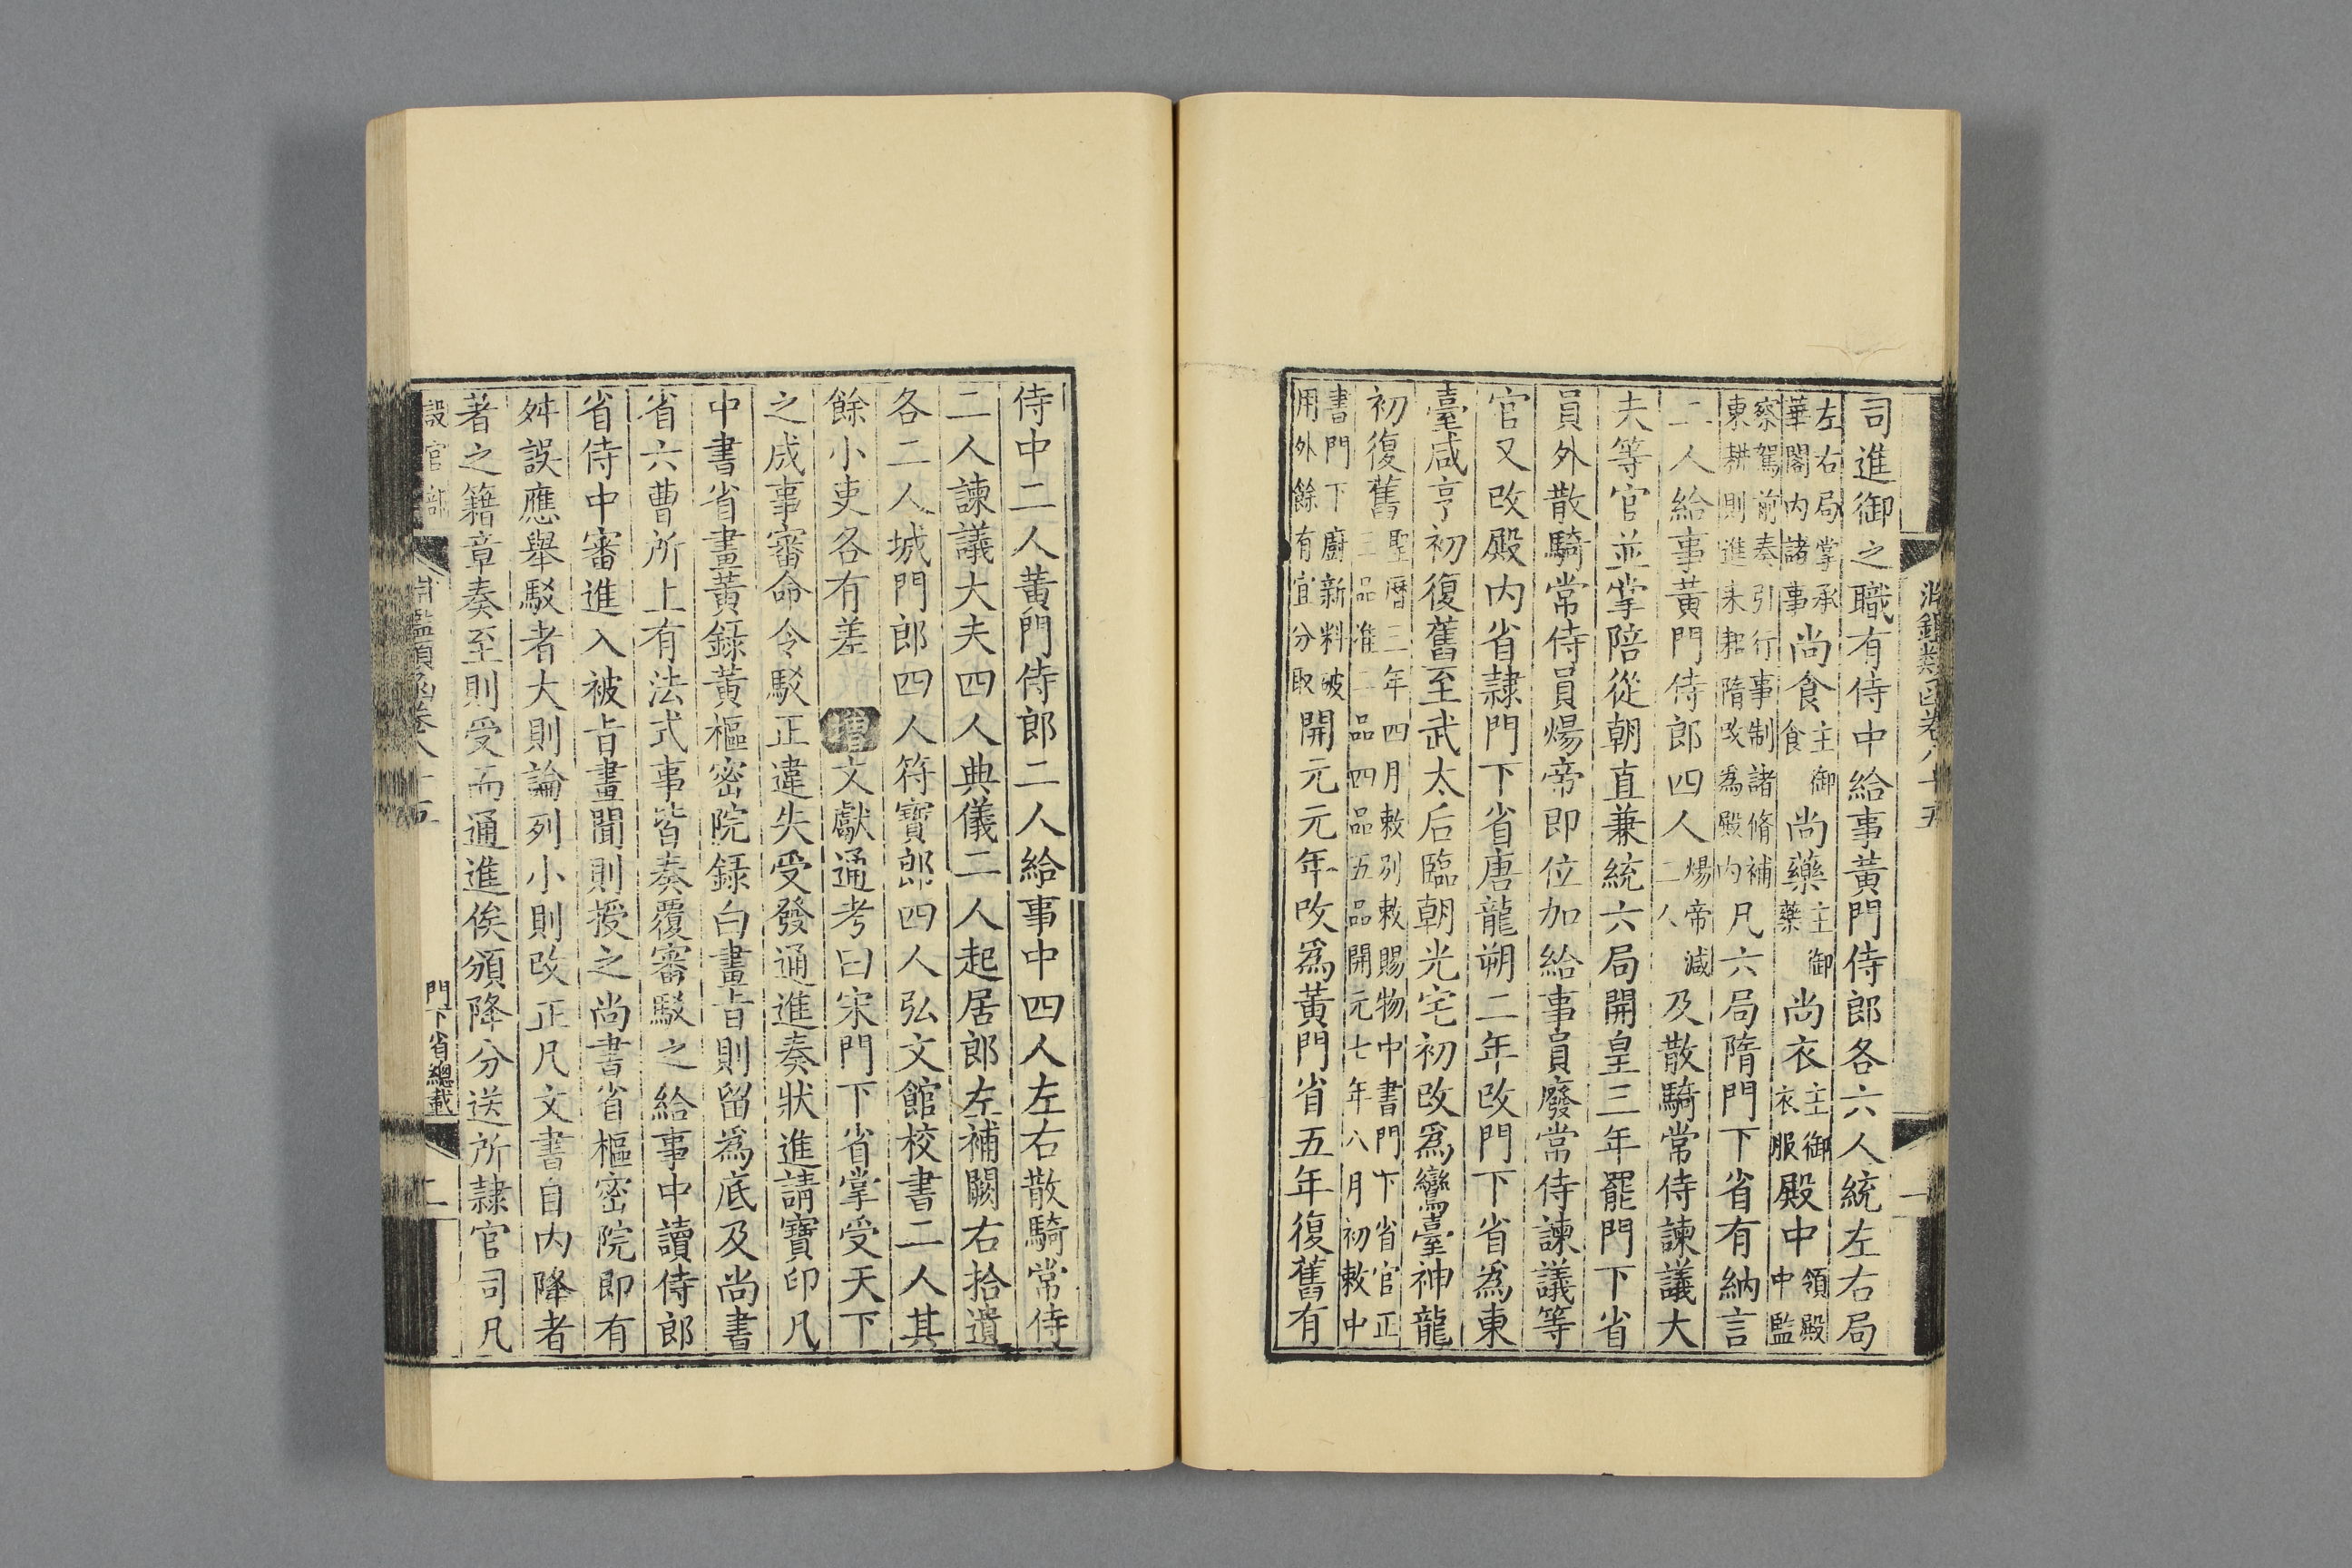 淵鑑類函卷八十五
一
司進御之職有侍中給事黃門侍郎各六人統左右局
左右局掌承
華閣內諸事
尚食
主御
食
尚藥
主御
藥
尚衣
主御
衣服
殿中
領殿
中監
察駕前奏引行事制諸脩補
東耕則進耒耜隋改為殿內
凡六局隋門下省有納言
二人給事黃門侍郎四人
煬帝減
二人
及散騎常侍諫議大
夫等官並掌陪從朝直兼統六局開皇三年罷門下省
員外散騎常侍員煬帝即位加給事員廢常侍諫議等
官又改殿內省隸門下省唐龍朔二年改門下省為東
臺咸亨初復舊至武太后臨朝光宅初改為鸞臺神龍
初復舊
聖曆三年四月敕別敕賜物中書門下省官正
三品准二品四品五品開元七年八月初敕中
書門下廚新料破
用外餘有宜分取
開元元年改為黃門省五年復舊有
侍中二人黃門侍郎二人給事中四人左右散騎常侍
二人諫議大夫四人典儀二人起居郎左補闕右拾遺
各二人城門郎四人符寶郎四人弘文館校書二人其
餘小吏各有差 增 文獻通考曰宋門下省掌受天下
之成事審命令駁正違失受發通進奏狀進請寶印凡
中書省畫黃錄黃樞密院錄白畫旨則留為底及尚書
省六曹所上有法式事皆奏覆審駁之給事中讀侍郎
省侍中審進入被旨畫聞則授之尚書省樞密院即有
舛誤應舉駁者大則論列小則改正凡文書自內降者
著之籍章奏至則受而通進俟頒降分送所隸官司凡
設官部
淵鑑類函卷八十五
門下省總載
二